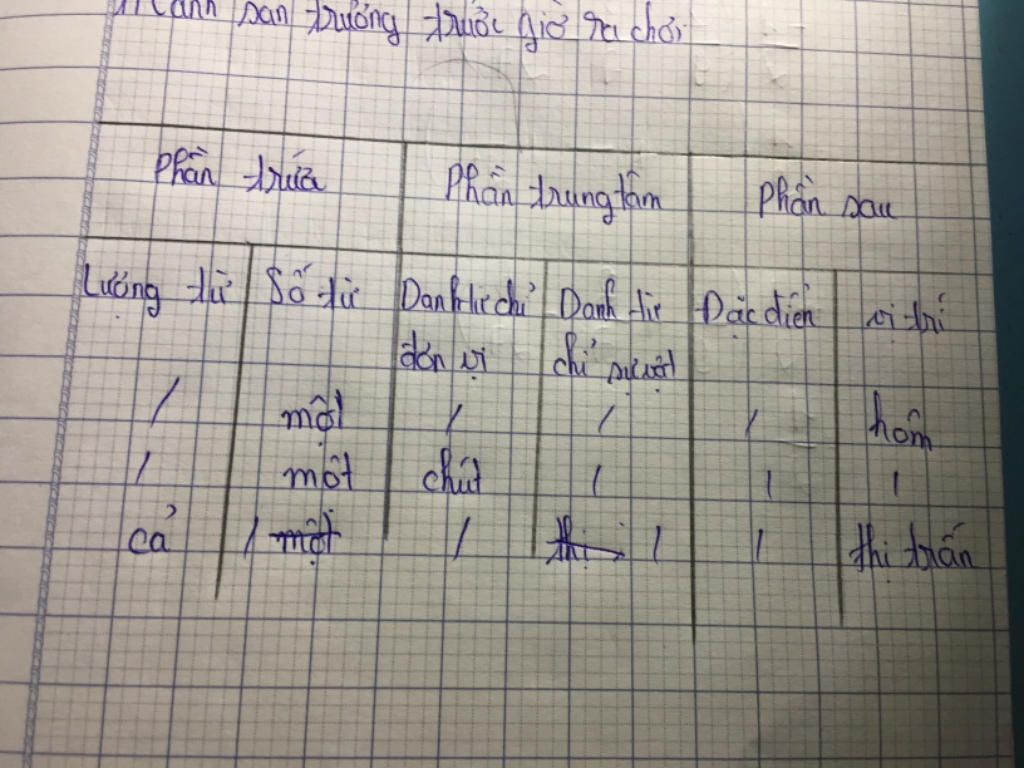 cảnh sân trường trước giờ ra chơi
Phần trước Phần trung tâm Phần sau
Lượng từ Số từ Danh từ chỉ Danh từ Đặc điển vị trí
đơn vị chỉ sự vật
/ một / / / hôm
/ một chút / / /
cả / một / thị / / thị trấn